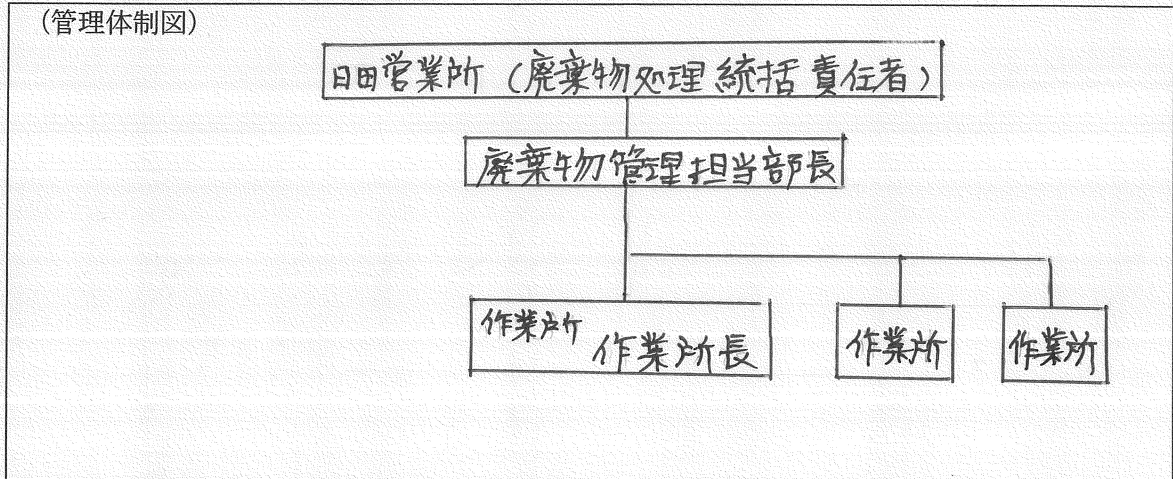 (管理体制図)
日田営業所(廃棄物処理統括責任者)
廃棄物管理担当部長
作業所 作業所長
作業所
作業所